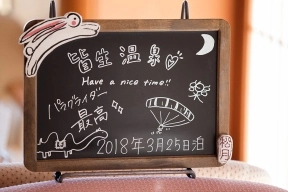 皆生温泉
Have a nice time!!
パラグライダー
最高
2018年3月25日泊